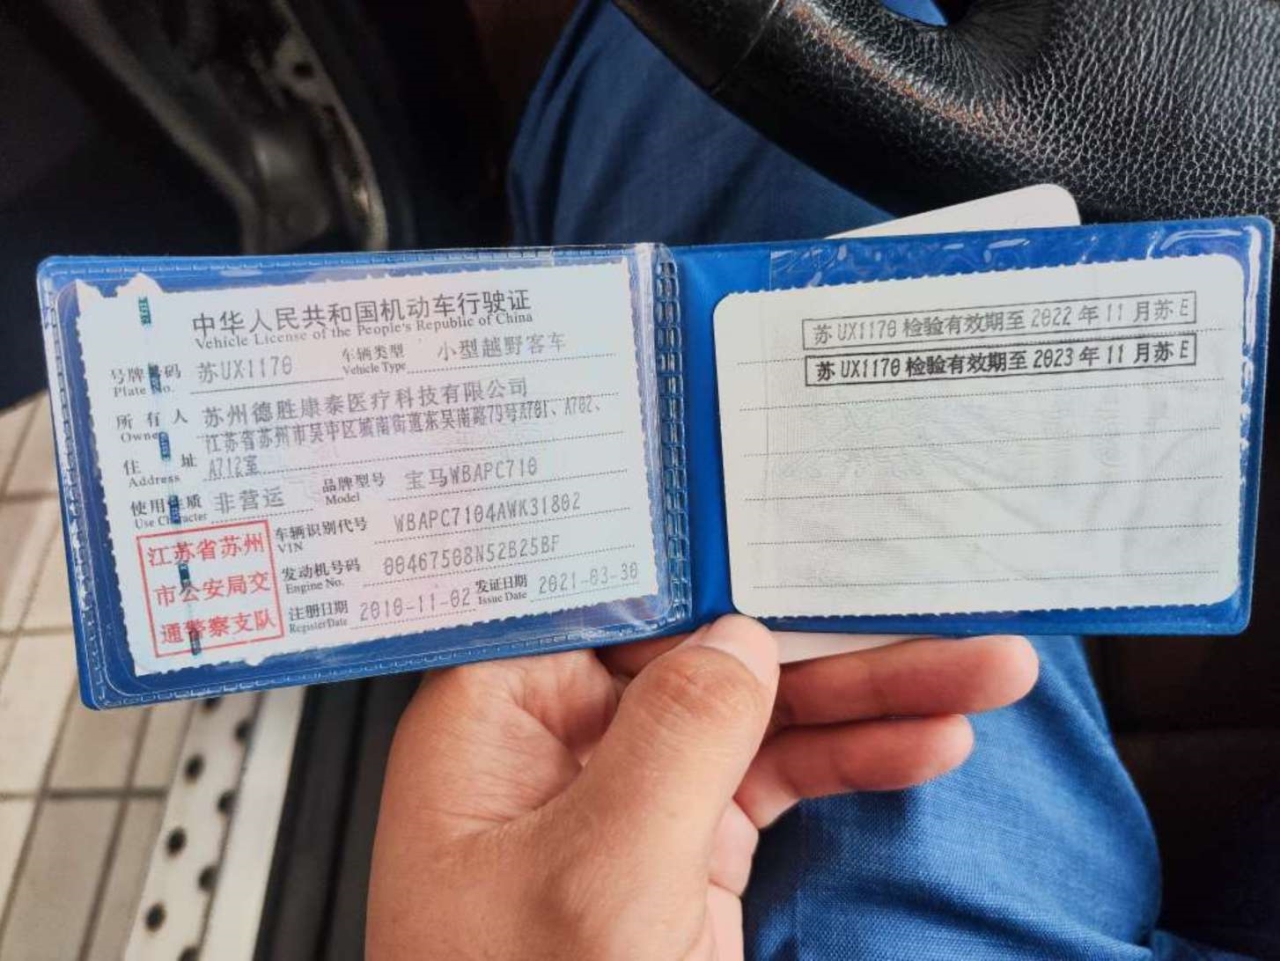 中华人民共和国机动车行驶证
Vehicle License of the People's Republic of China
号牌号码 苏UX1170 车辆类型 小型越野客车
Plate No. Vehicle Type
所有人 苏州德胜康泰医疗科技有限公司
Owner
江苏省苏州市吴中区城南街道东吴南路79号A701、A702、
住址 A712室
Address
使用性质 非营运 品牌型号 宝马WBAPC710
Use Character Model
车辆识别代号 WBAPC7104AWK31802
VIN
发动机号码 00467508N52B25BF
Engine No.
注册日期 2010-11-02 发证日期 2021-03-30
Register Date Issue Date
江苏省苏州
市公安局交
通警察支队
苏UX1170检验有效期至2022年11月苏E
苏UX1170检验有效期至2023年11月苏E